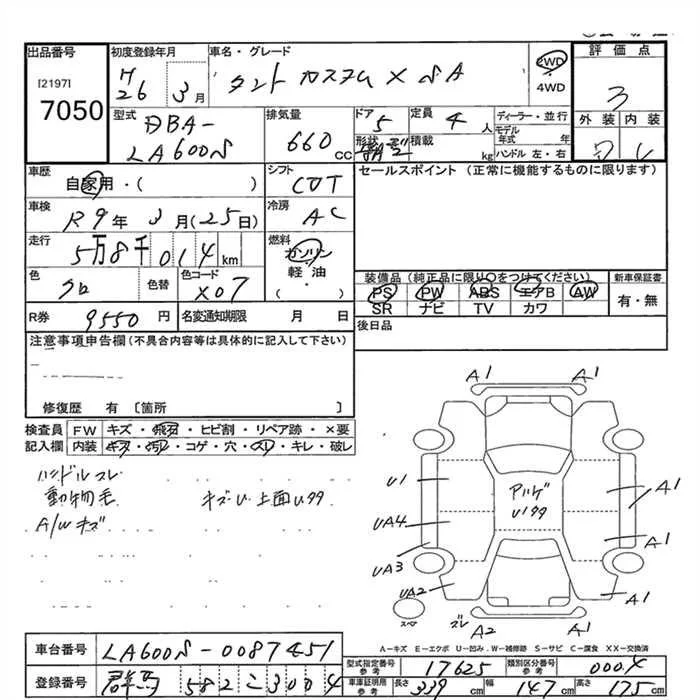 出品番号
[2197]
7050
初度登録年月
H26年 3月
車名・グレード
タント カスタム X SA
2WD
・
4WD
評価点
3
外装 内装
型式
DBA-
LA600S
排気量
660cc
ドア
5
形状
定員
4人
積載
kg
ディーラー・並行
モデル年式 年
ハンドル 左・右
車歴
自家用・( )
シフト
CVT
セールスポイント(正常に機能するものに限ります)
車検
R9年 3月(25日)
冷房
AC
走行
5万8千014km
燃料
ガソリン
軽油・
( )
色
クロ
色替
色コード
X07
装備品(純正品に限り○をつけてください)
PS PW ABS エアB AW
SR ナビ TV カワ
新車保証書
有・無
R券
9550円
名変通知期限 月 日
後日品
注意事項申告欄(不具合内容等は具体的に記入して下さい)
修復歴 有 [箇所 ]
検査員
記入欄
FW キズ・飛石・ヒビ割・リペア跡・×要
内装 キズ・汚レ・コゲ・穴・スレ・キレ・破レ
ハンドルスレ
動物毛
A/Wキズ
A1 A1
U1
UA4
UA3
UA2
A1
A1
A1
A2 A1
スペア
ズレ
A-キズ E-エクボ U-凹み W-補修跡 S-サビ C-腐食 XX-交換済
車台番号
LA600S-0087451
登録番号
群馬 582 こ 3004
型式指定番号
参考
17625
類別区分番号
参考
0004
車庫証明用
参考
長さ 339cm
幅 147cm
高さ 175cm